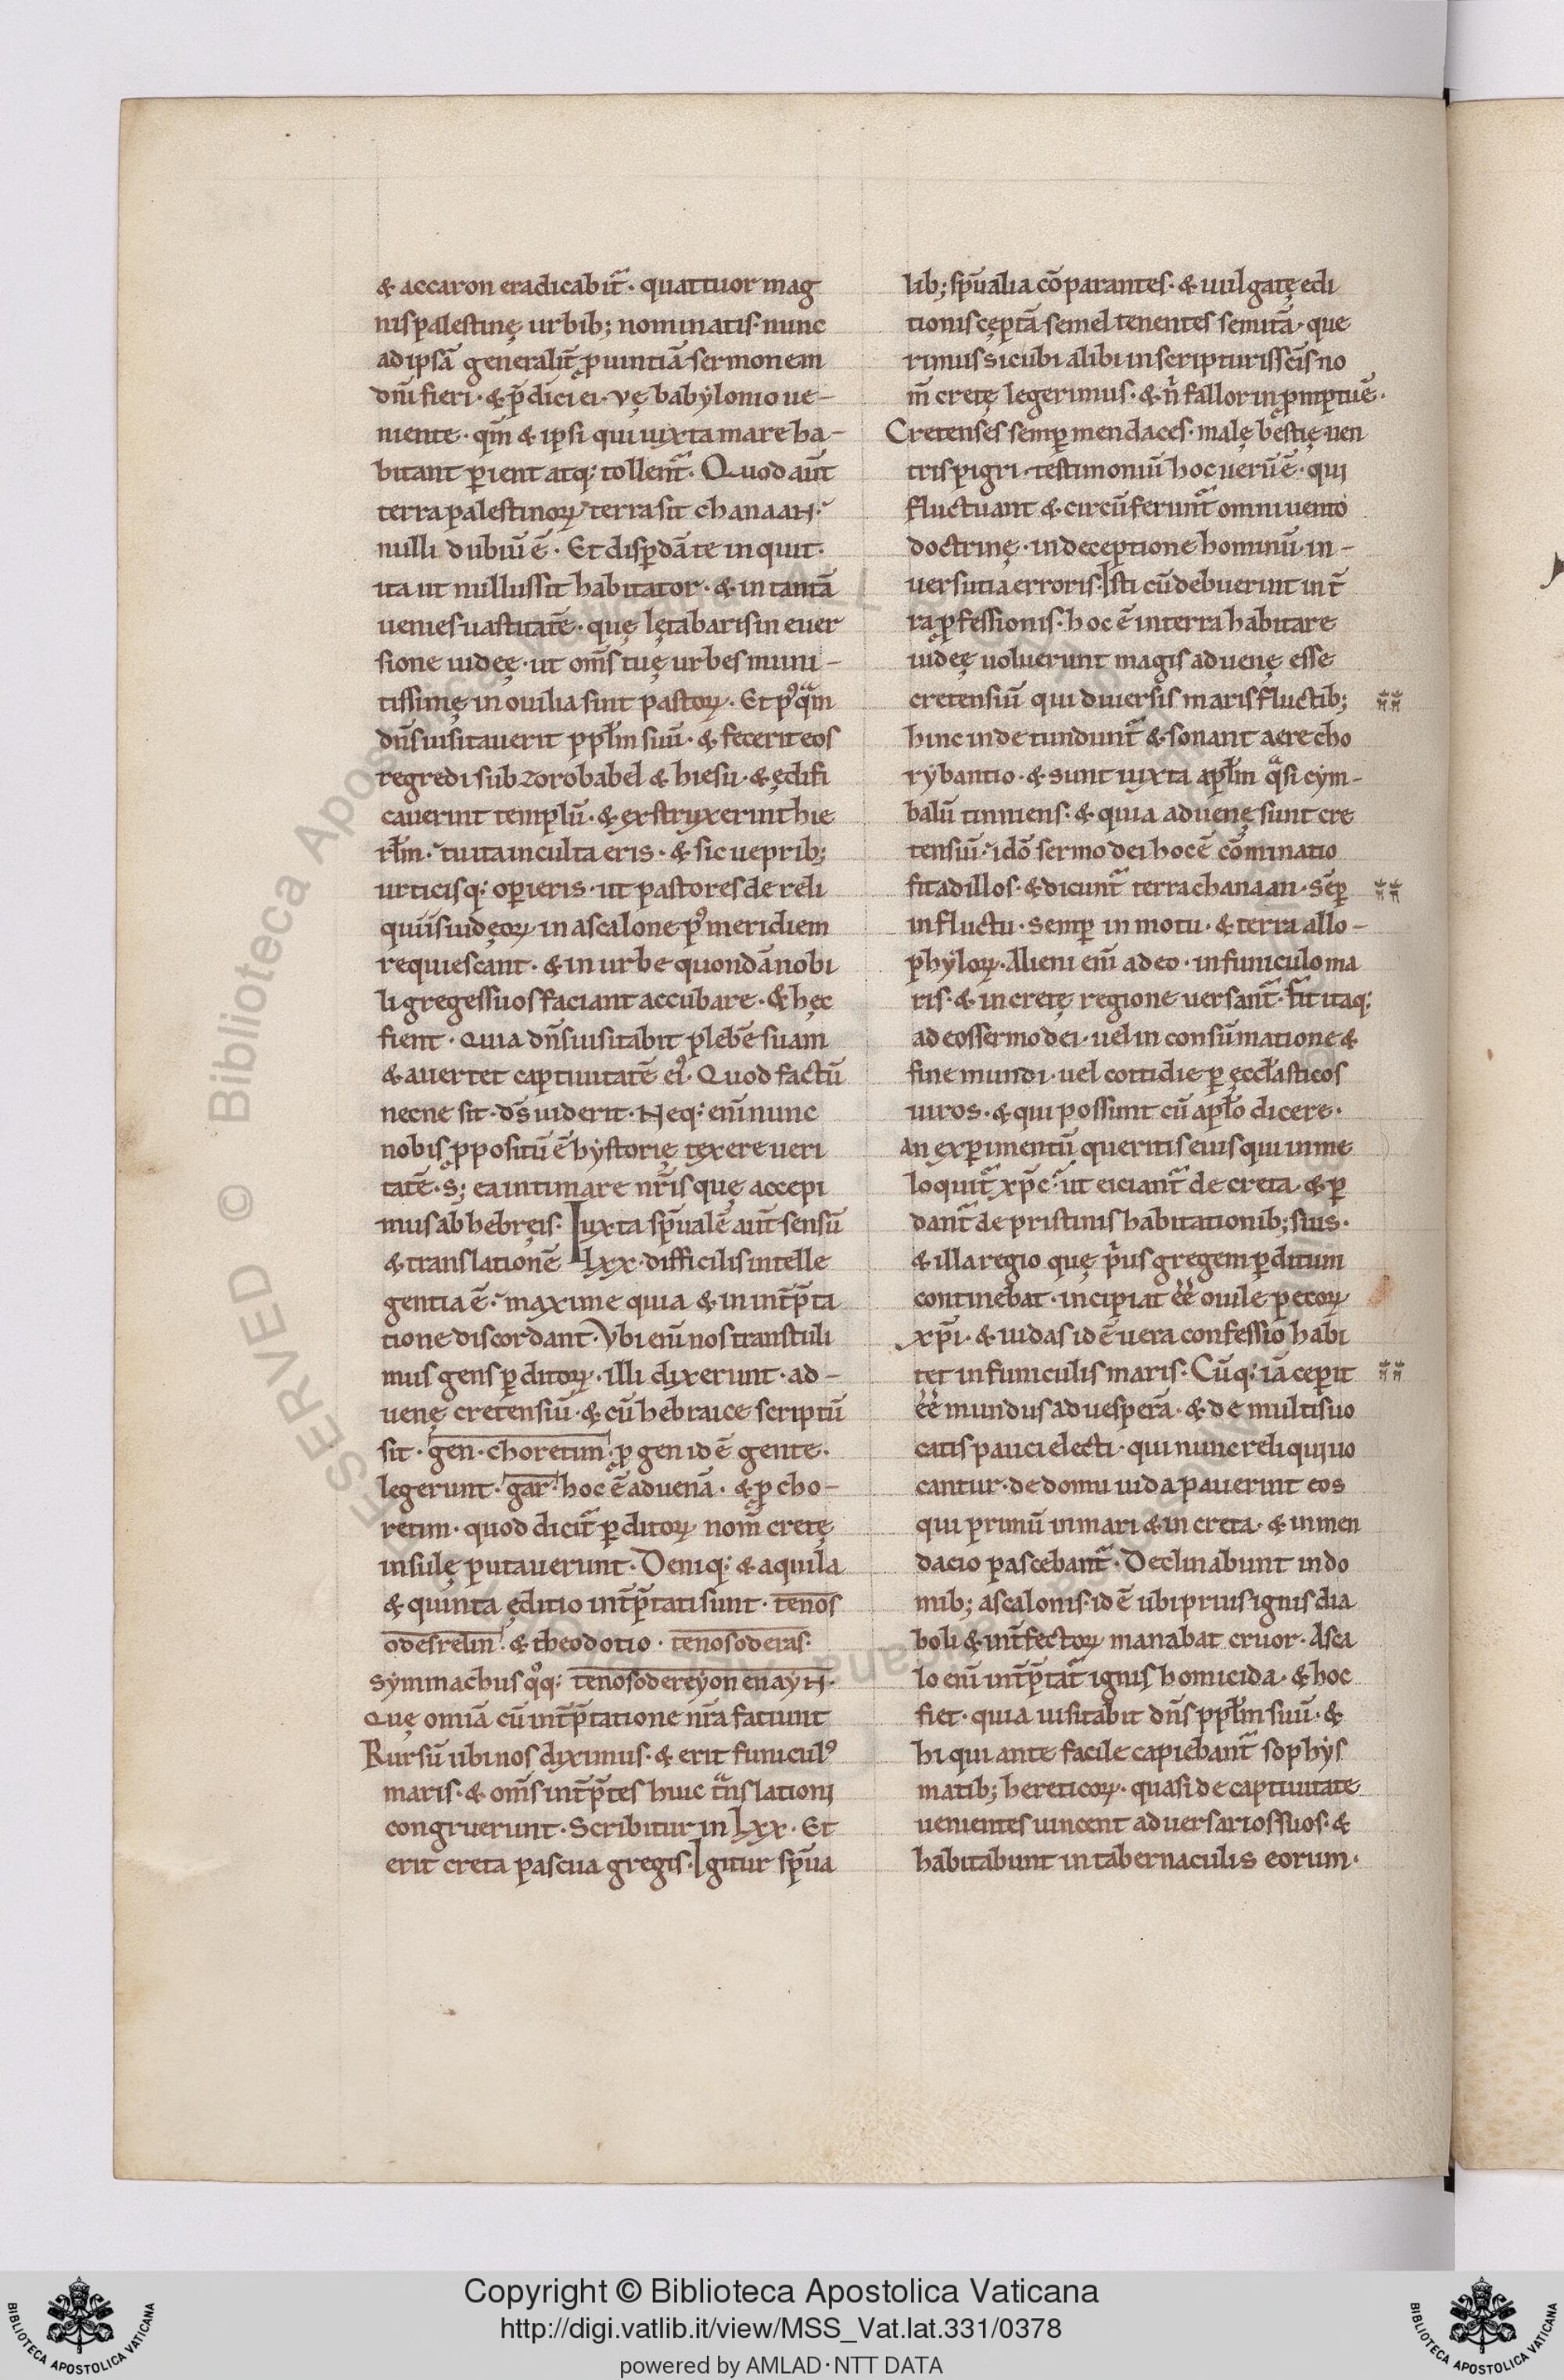 & accaron eradicabit᷑. quattuor mag
nis palestinę urbib; nominatis. nunc
ad ipsā generalit̄ ꝓuintiā sermonem
dn̄i fieri. & p̄dici ei. vę babylonio ue-
niente. qm̄ & ipsi qui iuxta mare ha-
bitant ꝑient atq; tollent᷑. Quod aut̄
terra palestinoꝝ terra sit chanaan.
nulli dubiū ē. Et disꝑdā te inquit.
ita ut nullus sit habitator. & in tantā
uenies uastitatē. quę lętabaris in euer
sione iudeę. ut om̄s tuę urbes muni-
tissimę in ouilia sint pastoꝝ. Et pꝰqᵃm
dn̄s uisitauerit ppl̄m suū. & fecerit eos
regredi sub zorobabel & hiesu. & ędifi
cauerint templū. & exstruxerint hie
rl̄m. tu ita inculta eris. & sic ueprib;
urticisq; oꝑieris. ut pastores de reli
quiis iudęoꝝ in ascalone pꝰ meridiem
requiescant. & in urbe quondā nobi
li greges suos faciant accubare. & hęc
fient. quia dn̄s uisitabit plebē suam
& auertet captiuitatē eiꝰ. Quod factū
necne sit. ds̄ uiderit. Neq; eni nunc
nobis ꝓpositū ē hystorię texere ueri
tatē. s; ea intimare nr̄is quę accepi
mus ab hebręis. Iuxta sp̄ualē aut̄ sensū
& translationē Lxx. difficilis intelle
gentia ē. maxime quia & in int̄p̄ta
tione discordant. Vbi eni nos transtuli
mus gens ꝑditoꝝ. illi dixerunt. ad-
uenę cretensiū. & cū hebraice scriptū
sit. gen. choretim. ꝓ gen id ē gente.
legerunt. gar. hoc ē aduenā. & ꝓ cho-
retim. quod dicit᷑ ꝑditoꝝ nom̄ cretę
insulę putauerunt. Deniq; & aquila
& quinta ęditio int̄p̄tati sunt. tenos
odesrelin. & theodotio. tenosoderas.
Symmachus qᵒq; tenosodereyonenayn.
Quę omia cū int̄p̄tatione nr̄a faciunt
Rursū ubi nos diximus. & erit funiculꝰ
maris. & om̄s int̄p̄tes huic tᵃnslationi
congruerunt. Scribitur in Lxx. Et
erit creta pascua gregis. Igitur sp̄ua
lib; sp̄ualia cōparantes. & uulgatę edi
tionis cęptā semel tenentes semitā. que
rimus sicubi alibi in scripturis sc̄is no
m̄ cretę legerimus. & n̄ fallor inpmptu ē.
Cretenses semꝑ mendaces. malę bestię uen
tris pigri. testimoniū hoc uerū ē. qui
fluctuant & circūferunt᷑ omni uento
doctrinę. in deceptione hominū. in-
uersutia erroris. Isti cū debuerint in t̄
ra ꝓfessionis. hoc ē in terra habitare
iudeę uoluerunt magis aduenę esse
cretensiū qui diuersis maris fluctib;
hinc inde tundunt᷑ & sonant aere cho
rybantio. & sunt iuxta apl̄m qᵃsi cym-
balū tinniens. & quia aduenę sunt cre
tensiū. idō sermo dei hoc ē cōminatio
fit ad illos. & dicunt᷑ terra chanaan. sēꝑ
in fluctu. semꝑ in motu. & terra allo-
phyloꝝ. Alieni eni a deo. in funiculo ma
ris. & in cretę regione uersant᷑. fit itaq;
ad eos sermo dei. uel in consūmatione &
fine mundi. uel cottidie ꝑ ęccl̄asticos
uiros. & qui possunt cū apl̄o dicere.
An exꝑimentū queritis eius qui in me
loquit᷑ xp̄c. ut eiciant᷑ de creta. & ꝑ
dant᷑ de pristinis habitationib; suis.
& illa regio quę pⁱus gregem ꝑditum
continebat. incipiat ee ouile pecoꝝ
xp̄i. & iudas id ē uera confessio habi
tet in funiculis maris. Cūq; iā ceperit
ee mundus ad uesperā. & de multis uo
catis pauci electi. qui nunc reliqui uo
cantur. de domu iuda pauerint eos
qui primū in mari & in creta. & in men
dacio pascebant᷑. Declinabunt in do
mib; ascalonis. id ē ubi prius ignis dia
boli & int̄fectoꝝ manabat cruor. Asca
lo eni int̄p̄tat᷑ ignis homicida. & hoc
fiet. quia uisitabit dn̄s ppl̄m suū. &
hi qui ante facile capiebant᷑ sophys
matib; hereticoꝝ. quasi de captiuitate
uenientes uincent aduersarios suos. &
habitabunt in tabernaculis eorum.
Copyright © Biblioteca Apostolica Vaticana
http://digi.vatlib.it/view/MSS_Vat.lat.331/0378
powered by AMLAD · NTT DATA
BIBLIOTECA APOSTOLICA VATICANA
BIBLIOTECA APOSTOLICA VATICANA